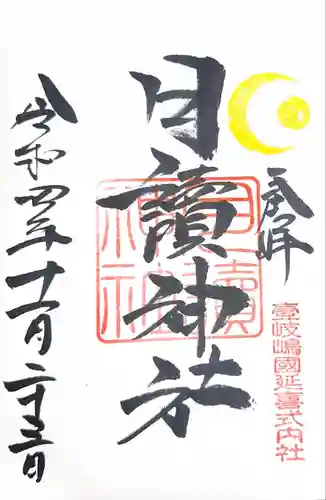 奉拝
月讀神社
壹岐嶋國延喜式内社
令和四年十一月二十三日